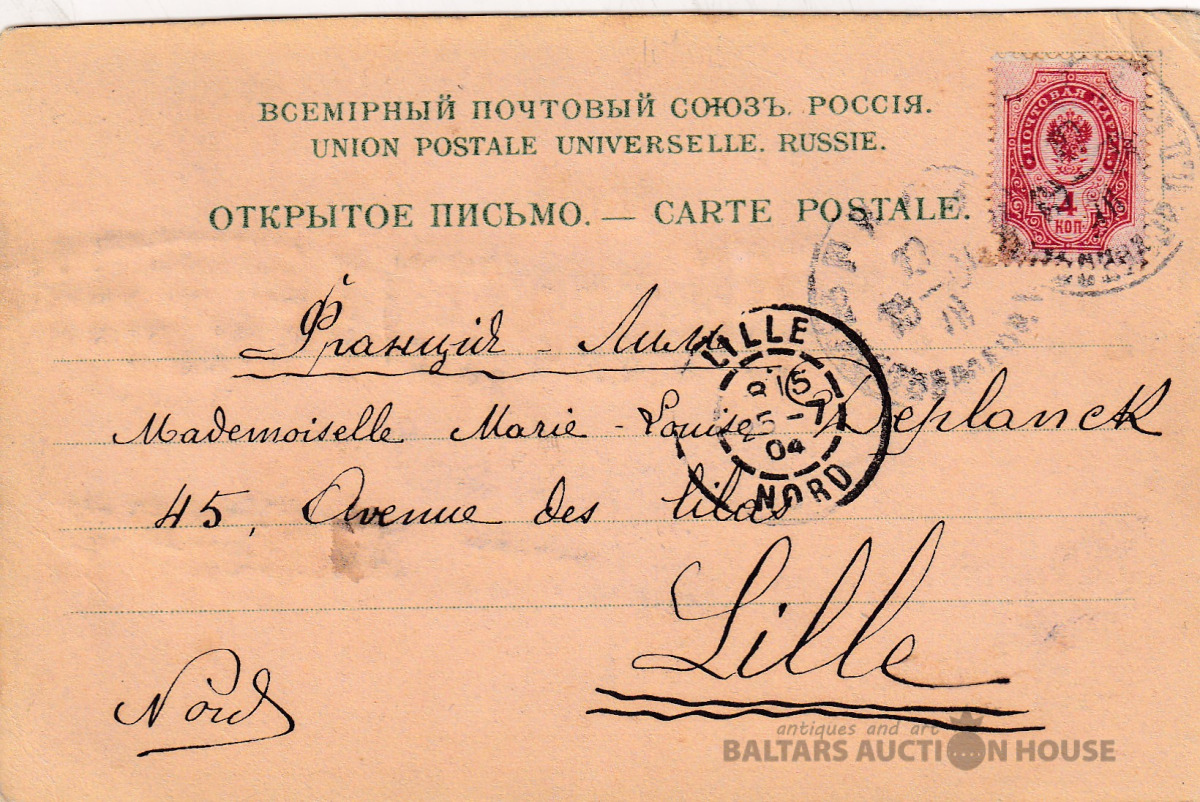 ВСЕМІРНЫЙ ПОЧТОВЫЙ СОЮЗЪ. РОССІЯ.
UNION POSTALE UNIVERSELLE. RUSSIE.
ОТКРЫТОЕ ПИСЬМО. — CARTE POSTALE.
ПОЧТОВАЯ МАРКА
4
КОП
Франція - Лилль
LILLE
15
25 -7
04
NORD
Mademoiselle Marie-Louise Deplanck
45, Avenue des lilas
Lille
Nord
antiques and art
BALTARS AUCTION HOUSE